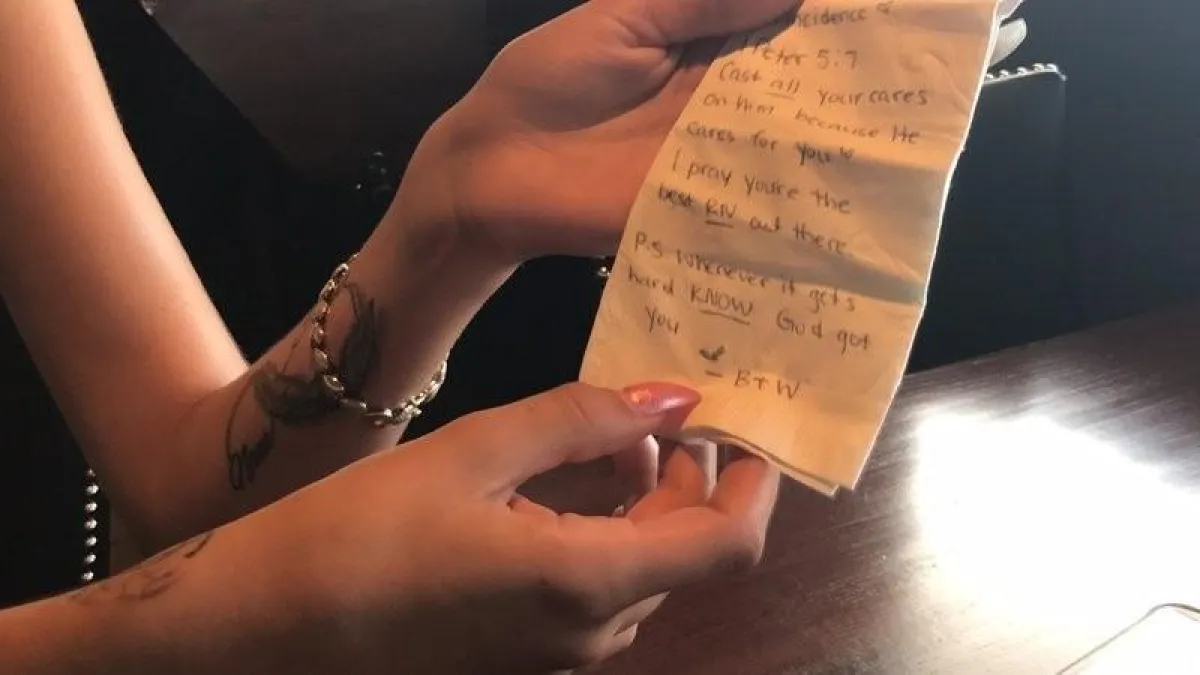 Peter 5:7
Cast all your cares
on Him because He
cares for you
I pray you're the
best RN out there
P.S. Whenever it gets
hard KNOW God got
you
- B+W